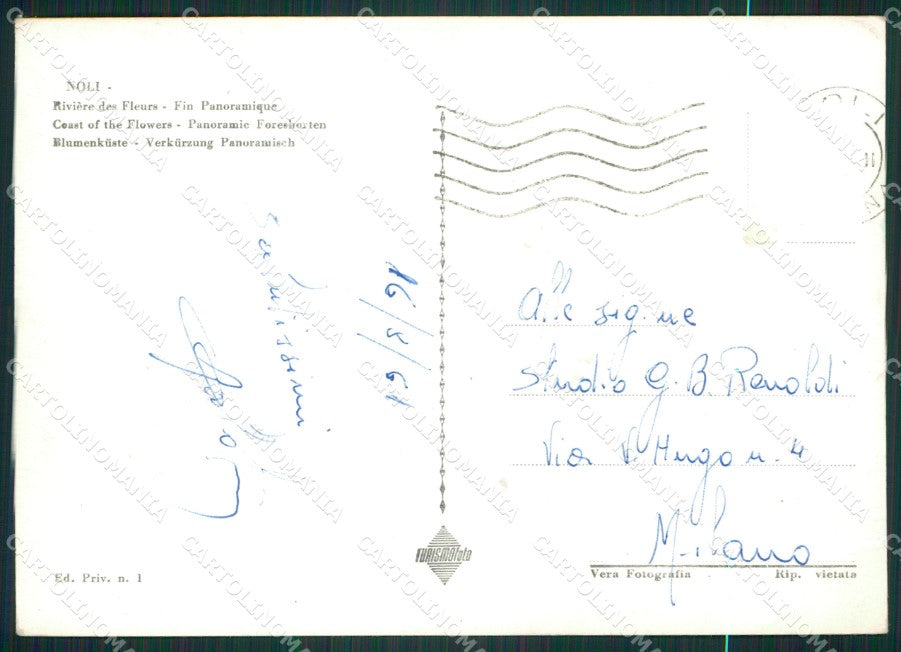 NOLI -
Rivière des Fleurs - Fin Panoramique
Coast of the Flowers - Panoramic Foreshorten
Blumenküste - Verkürzung Panoramisch
Salutissimi
16/8/61
Alle sig.ne
Studio G. B. Renoldi
Via V. Hugo n. 4
Milano
TURISMOfoto
Ed. Priv. n. 1
Vera Fotografia
Rip. vietata
CARTOLINOMANIA